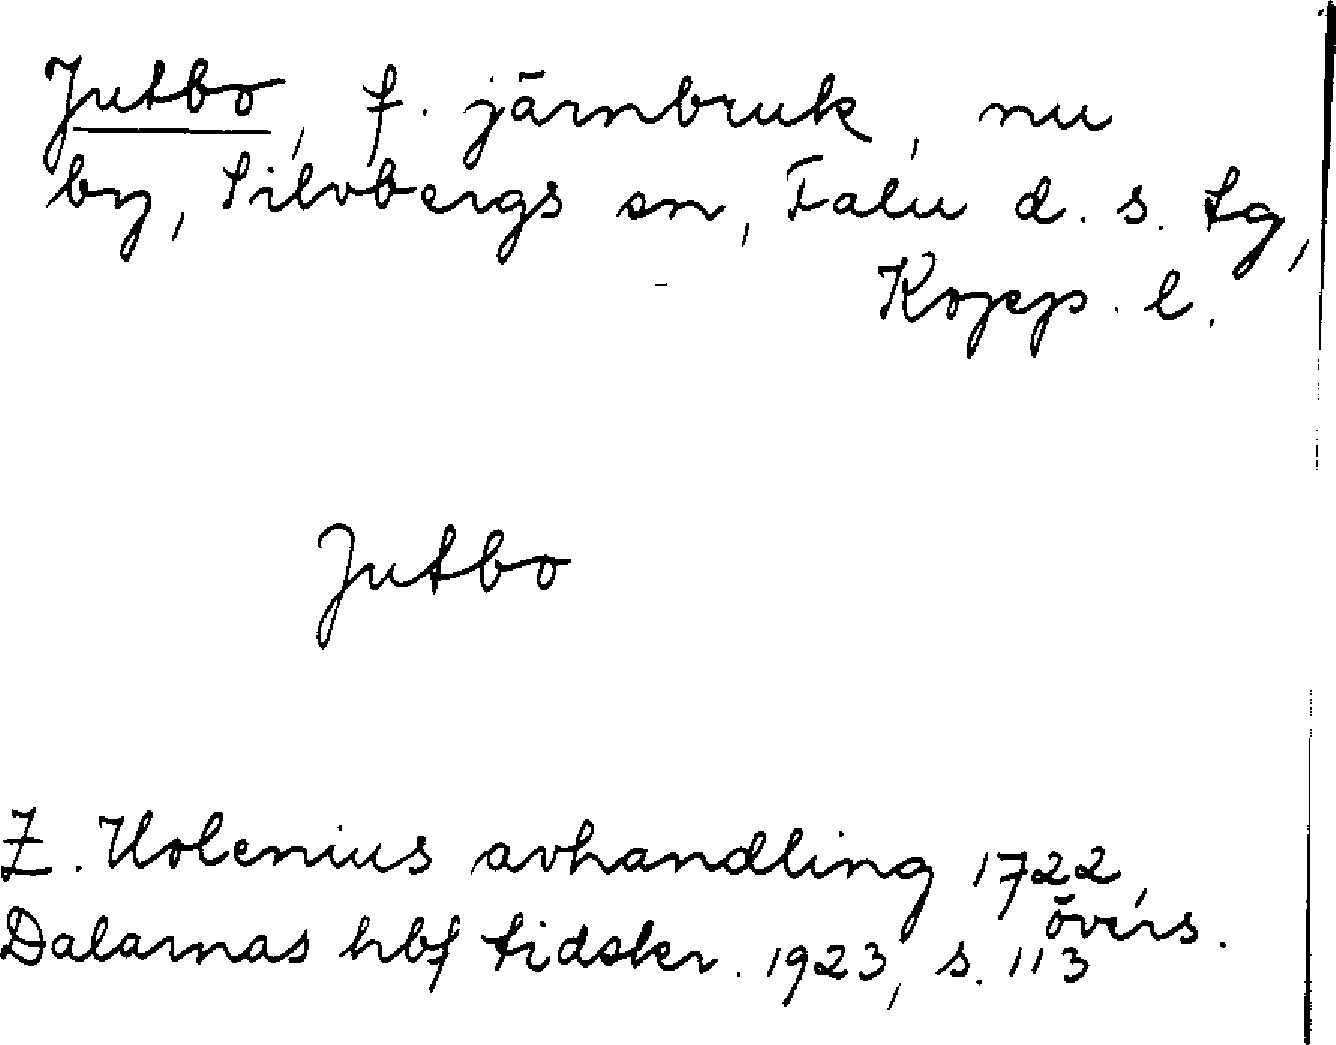 Jutbo, f. järnbruk, nu
by, Silvbergs sn, Falu d. s. tg,
Kopp. l.
Jutbo
Z. Holenius avhandling 1722,
övers.
Dalarnas hbf tidskr. 1923, s. 113